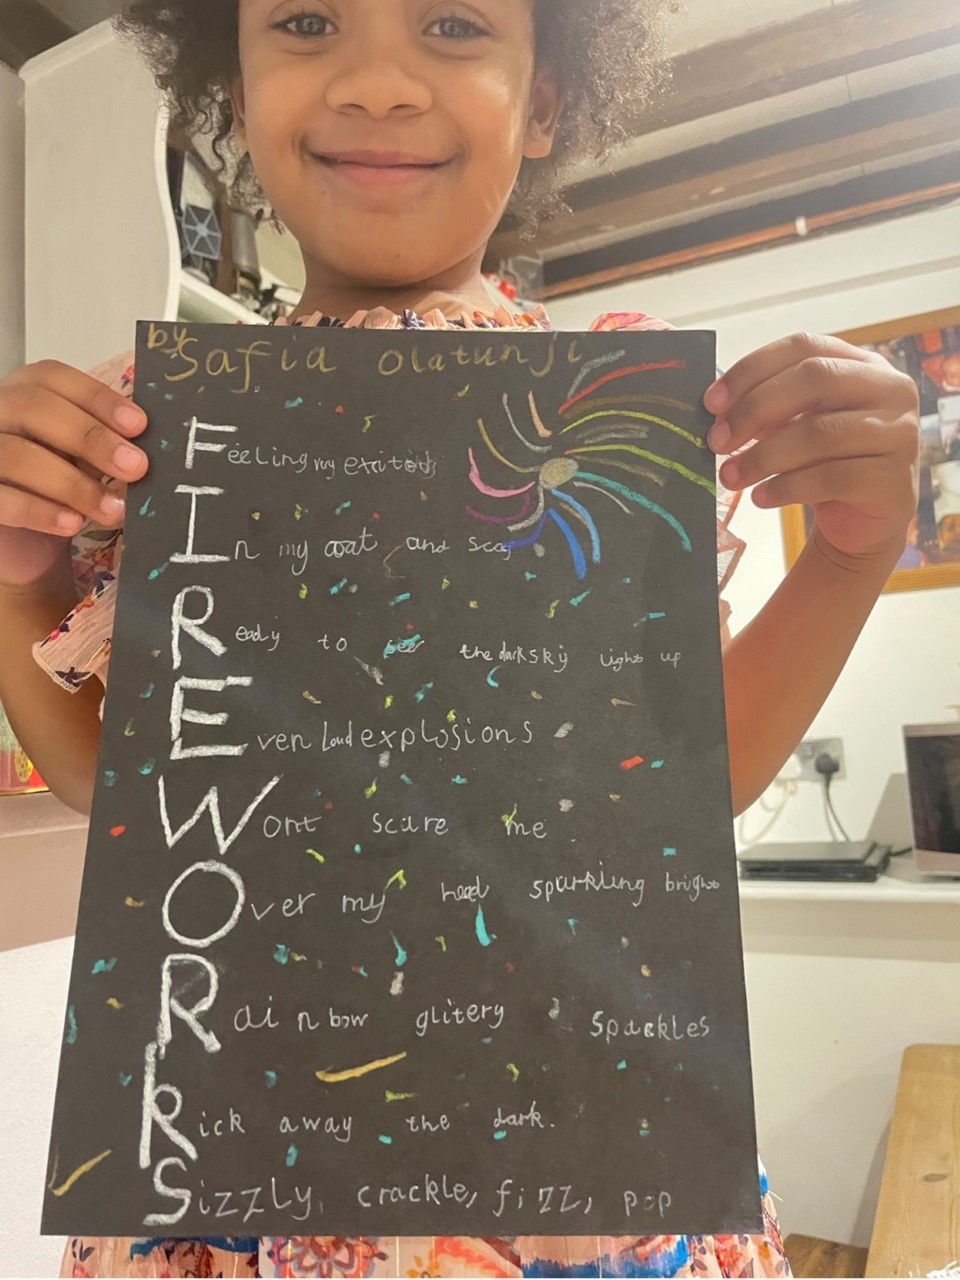 by Safia Olatunji
Feeling very excited
In my coat and scarf
Ready to see the dark sky light up
Even Loud explosions
Wont scare me
Over my head sparkling bright
Rainbow glitery Spackles
Kick away the dark.
Sizzly, crackle, fizz, pop